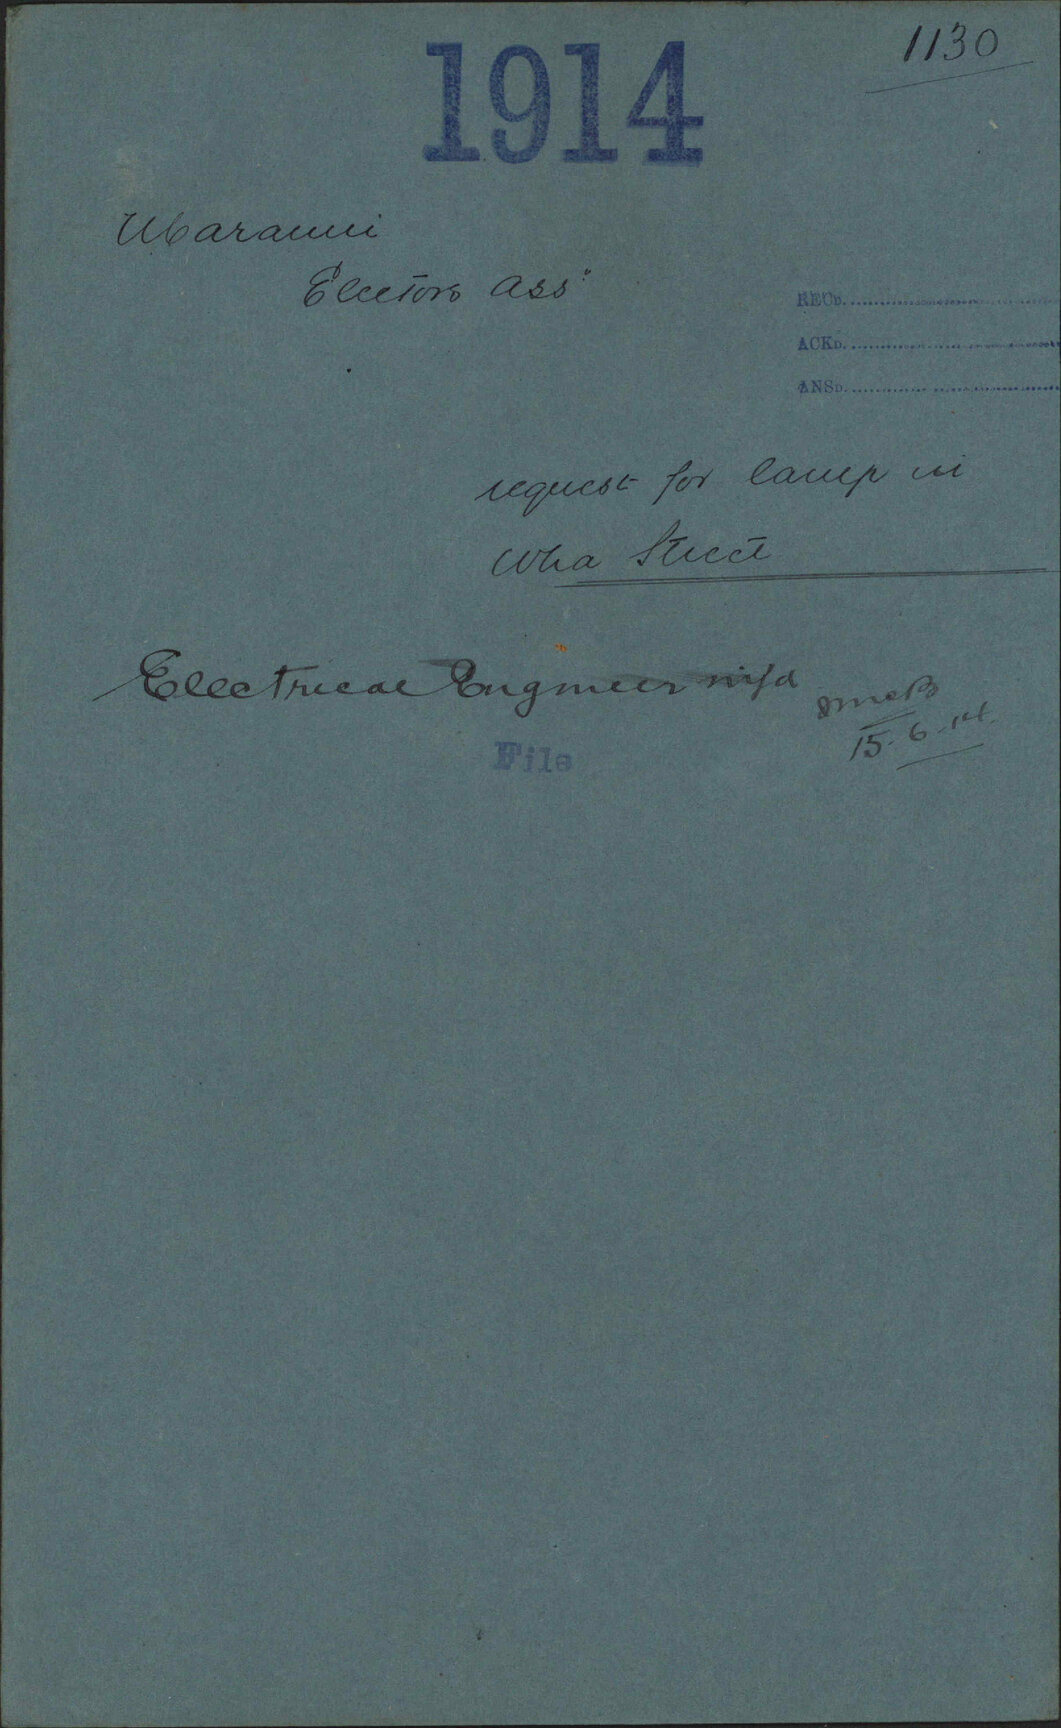 1130
1914
Maranui
Electors Ass"
RECD.
ACKD.
ANSD.
request for lamp in
Wha Street
Electrical Engineer
15.6.14
File